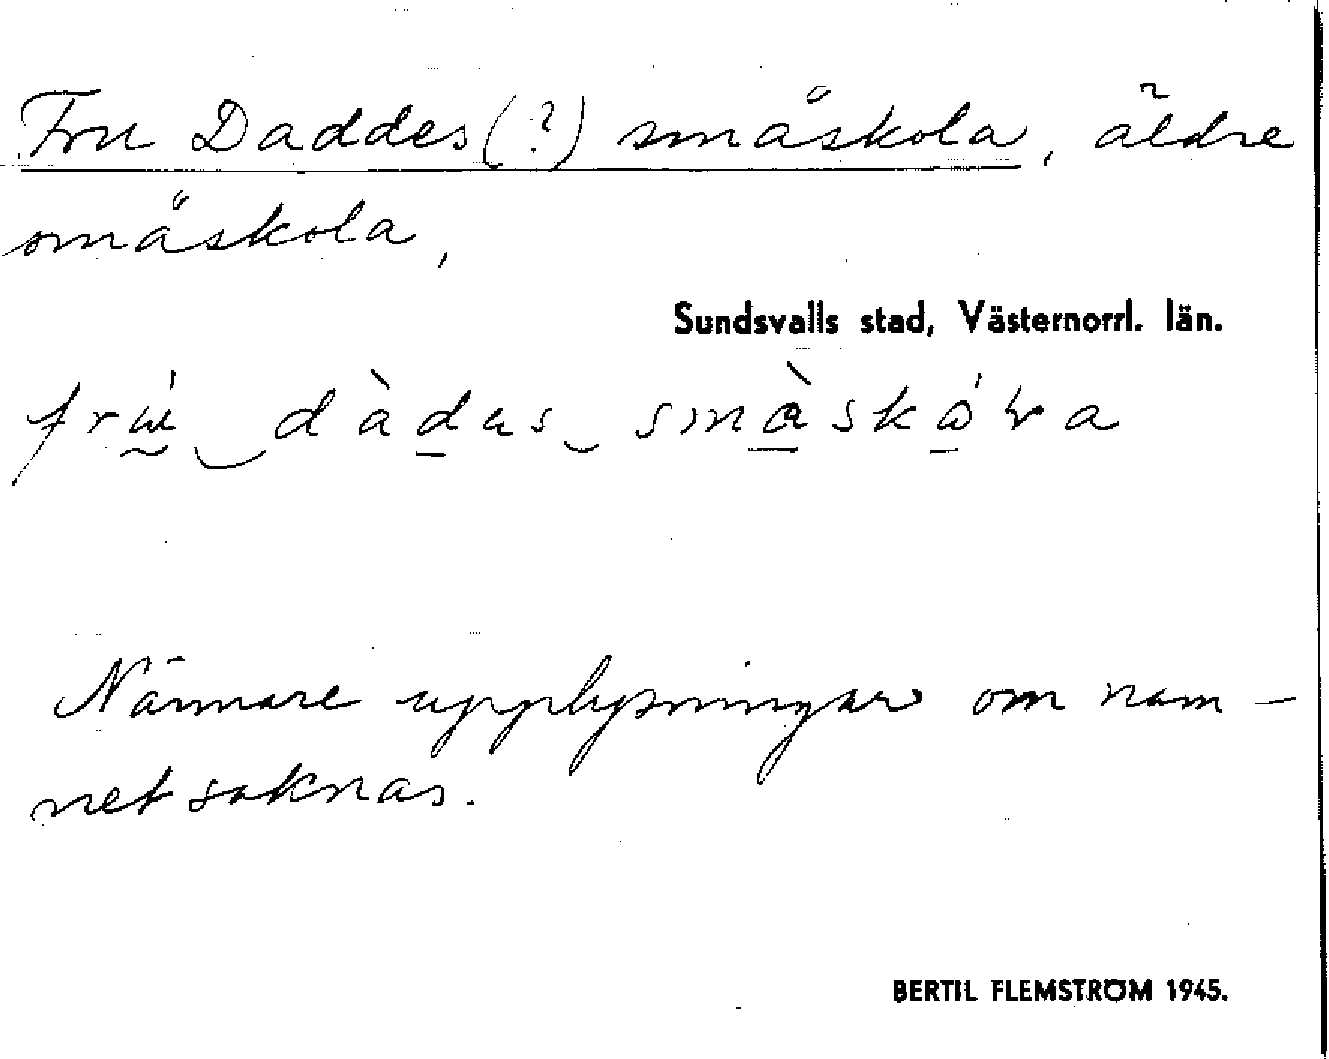 Fru Daddes (?) småskola, äldre
småskola,
Sundsvalls stad, Västernorrl. län.
frú dàdas småskóla
Närmare upplysningar om nam-
net saknas.
BERTIL FLEMSTRÖM 1945.